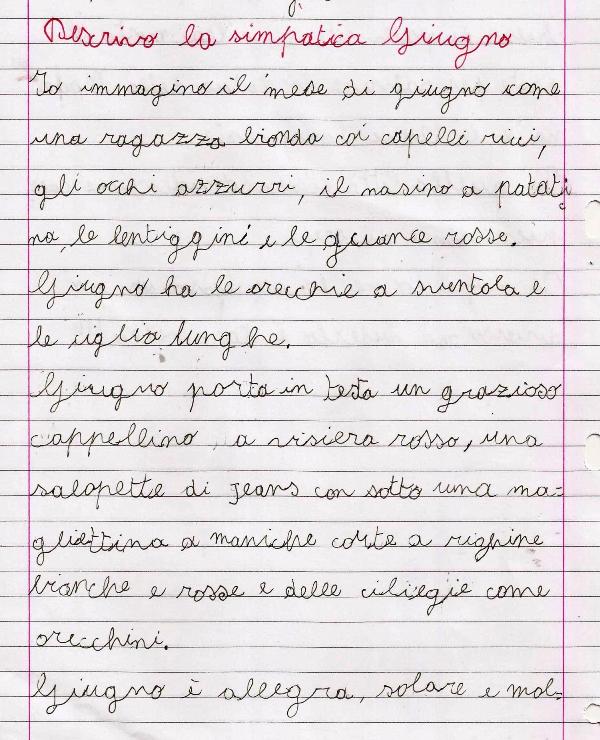 Descrivo la simpatica Giugno
Io immagino il mese di giugno come
una ragazza bionda coi capelli ricci,
gli occhi azzurri, il nasino a patati
na, le lentiggini e le guance rosse.
Giugno ha le orecchie a sventola e
le ciglia lunghe.
Giugno porta in testa un grazioso
cappellino a visiera rosso, una
salopette di jeans con sotto una ma=
gliettina a maniche corte a righine
bianche e rosse e delle ciliegie come
orecchini.
Giugno è allegra, solare e mol=